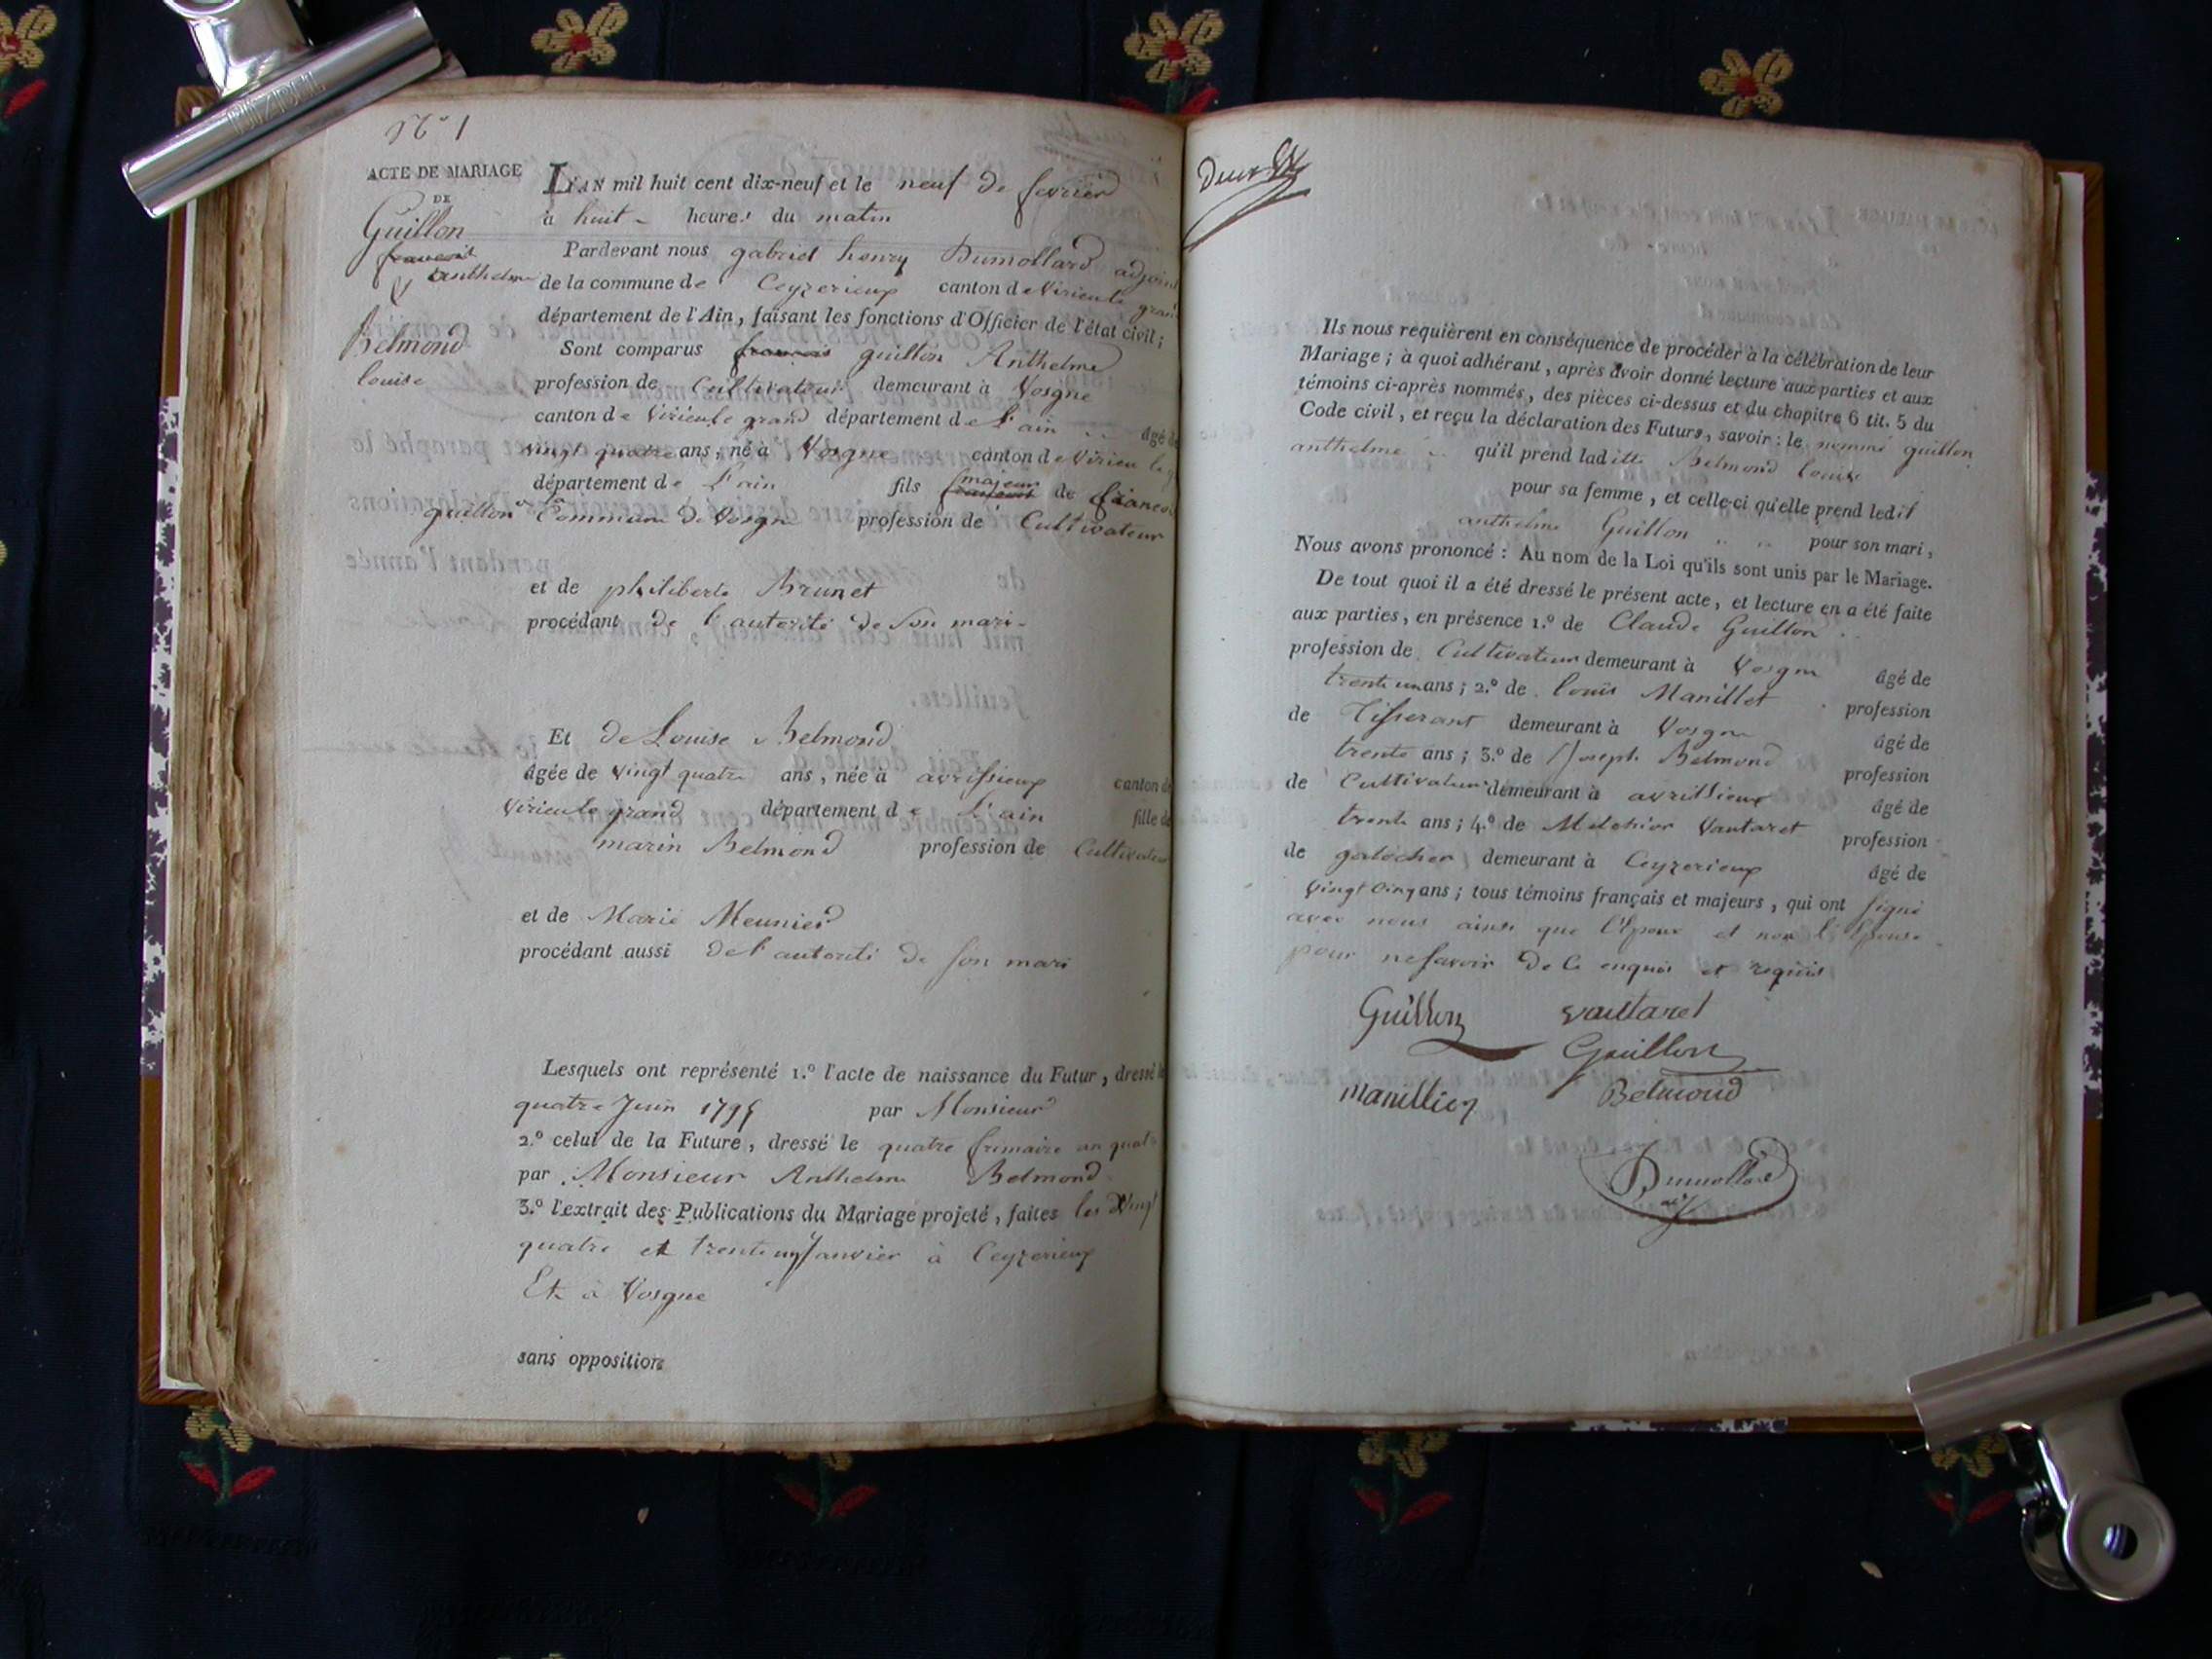 N.º 1
ACTE DE MARIAGE
DE
Guillon
francois
Anthelme
&
Belmond
louise
L'AN mil huit cent dix-neuf et le neuf de fevrier
à huit heures du matin
Pardevant nous gabriel henry Dumollard adjoint
de la commune de Ceyzerieux canton de Virieu le grand
département de l'Ain, faisant les fonctions d'Officier de l'état civil;
Sont comparus francois guillon Anthelme
profession de Cultivateur demeurant à Vosgne
canton de Virieu le grand département de L'ain âgé de
vingt quatre ans, né à Vosgne canton de Virieu le g
département de L'ain fils majeur de francois
guillon de la Commune de Vosgne profession de Cultivateur
et de philiberte Brunet
procédant de l'autorité de son mari
Et de Louise Belmond
âgée de vingt quatre ans, née à avrissieux canton de
virieu le grand département de L'ain fille de
marin Belmond profession de Cultivateur
et de Marie Meunier
procédant aussi de l'autorité de son mari
Lesquels ont représenté 1.º l'acte de naissance du Futur, dressé le
quatre Juin 1795 par Monsieur
2.º celui de la Future, dressé le quatre frimaire an quatre
par Monsieur Anthelme Belmond
3.º l'extrait des Publications du Mariage projeté, faites les Vingt
quatre et trente un Janvier à Ceyzerieux
Et à Vosgne
sans opposition
Deux
Ils nous requièrent en conséquence de procéder à la célébration de leur
Mariage; à quoi adhérant, après avoir donné lecture aux parties et aux
témoins ci-après nommés, des pièces ci-dessus et du chapitre 6 tit. 5 du
Code civil, et reçu la déclaration des Futurs, savoir: le nommé guillon
anthelme qu'il prend ladite Belmond louise
pour sa femme, et celle-ci qu'elle prend ledit
anthelme Guillon pour son mari,
Nous avons prononcé: Au nom de la Loi qu'ils sont unis par le Mariage.
De tout quoi il a été dressé le présent acte, et lecture en a été faite
aux parties, en présence 1.º de Claude Guillon
profession de Cultivateur demeurant à Vosgne âgé de
trente un ans; 2.º de louis Manillet profession
de Tisserant demeurant à Vosgne âgé de
trente ans; 3.º de Joseph Belmond profession
de Cultivateur demeurant à avrissieux âgé de
trente ans; 4.º de Melchior Vautaret profession
de galocher demeurant à Ceyzerieux âgé de
vingt cinq ans; tous témoins français et majeurs, qui ont signé
avec nous ainsi que l'Epoux et non l'Epouse
pour ne savoir de ce enquis et requis
Guillon vautaret
Guillon
manillier Belmond
Dumollard
adj